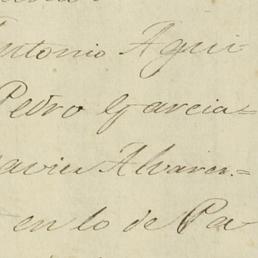 Antonio Agui-
Pedro Garcia-
Xavier Alvarez.=
en lo de Pa